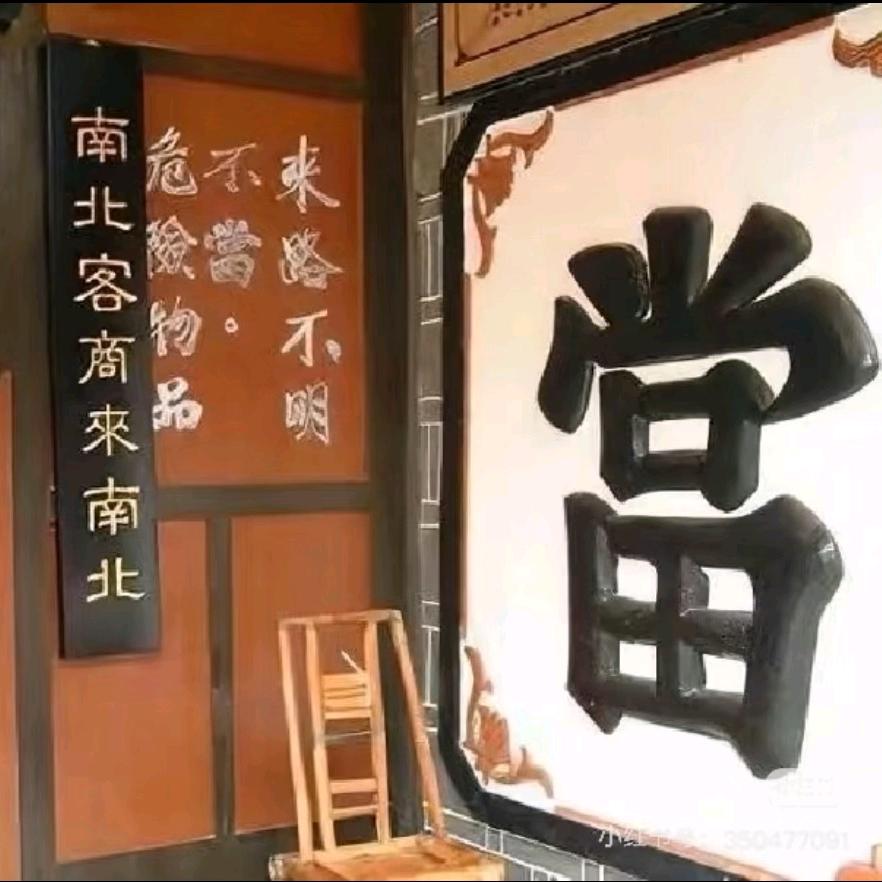 當
来路不明
不當·
危險物品
南北客商來南北
小红书号：350477091